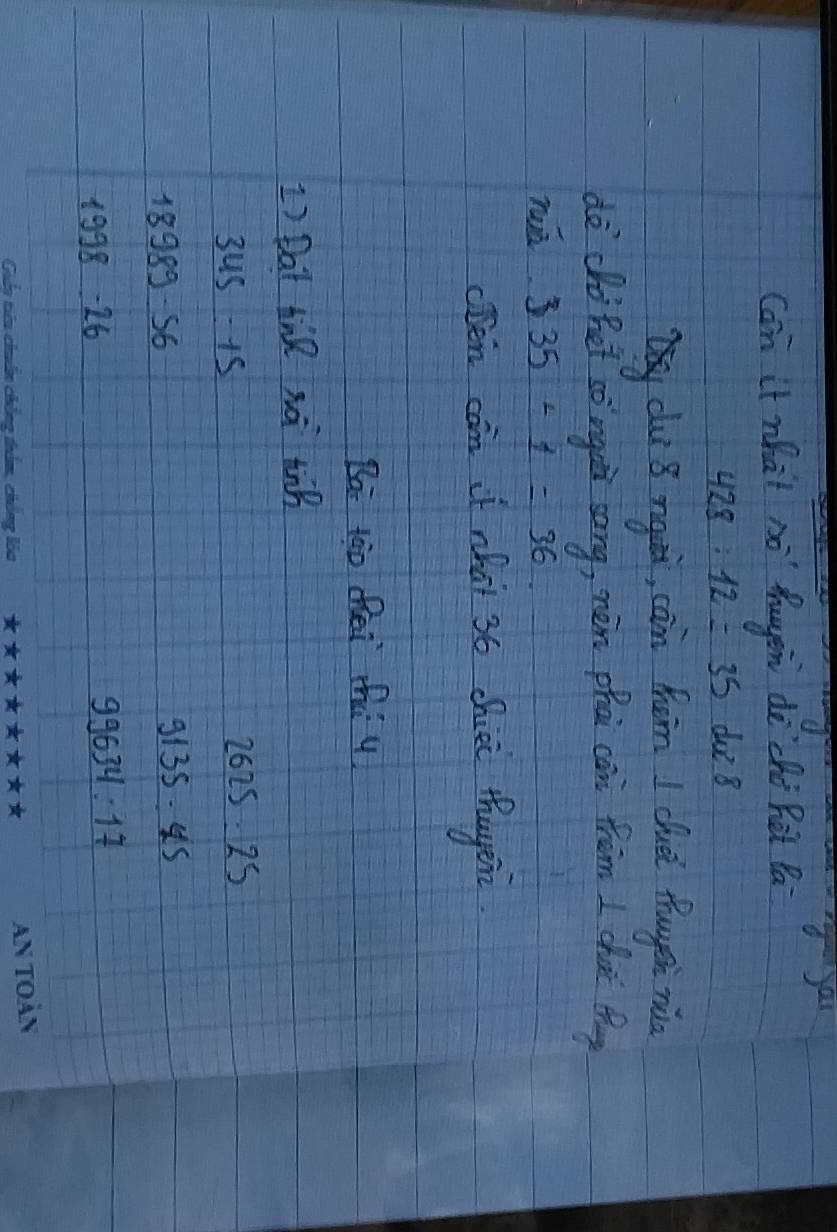 Cần ít nhất số thuyền để chở hết là
428 : 12 = 35 dư 8
Vậy dư 8 người, cần thêm 1 chiếc thuyền nữa
để chở hết số người sang, nên phải cần thêm 1 chiếc
nữa. 35 + 1 = 36.
cần ít nhất 36 chiếc thuyền.
Bài tập chiều thứ 4.
1) Đặt tính và tính
345 : 15 2625 : 25
18989 : 56 9135 : 45
1998 : 26 99634 : 17
★★★★★★★★ AN TOÀN